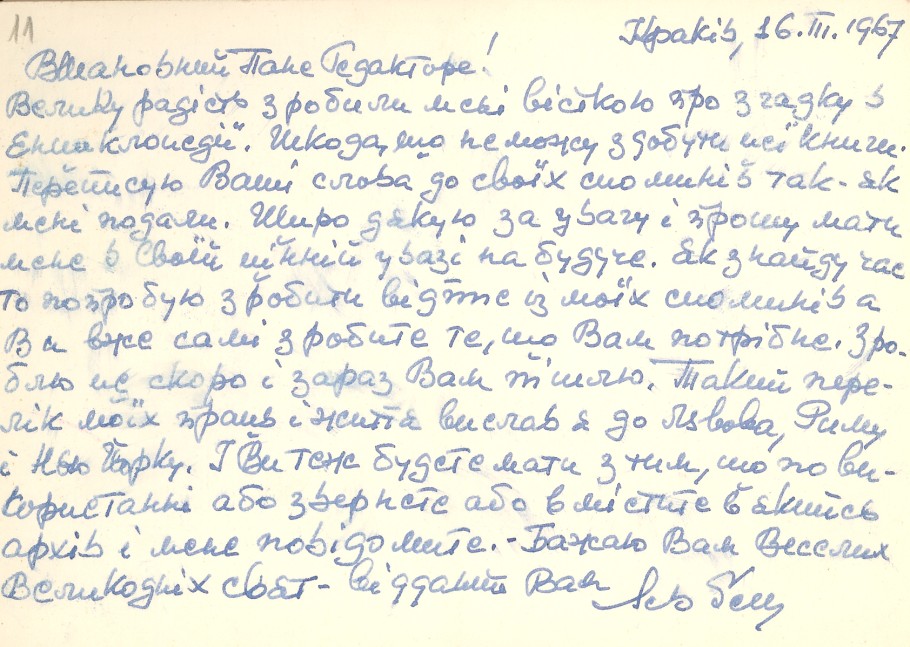 11
Краків, 26.III.1967
Вшановний Пане Редакторе!
Велику радість зробили мені вісткою про згадку в
Енциклопедії. Шкода, що не можу здобути цієї книги.
Переписую Ваші слова до своїх споминів так-як
мені подали. Щиро дякую за увагу і прошу мати
мене в своїй цінній увазі на будуче. Як знайду час
то попробую зробити відпис із моїх споминів а
Ви вже самі зробите те, що Вам потрібне. Зро-
блю це скоро і зараз Вам пішлю. Такий пере-
лік моїх праць і життя вислав я до Львова, Риму
і Нью Йорку. І Ви теж будете мати з тим, що по ви-
користанні або звернете або вмістите в якийсь
архів і мене повідомите. - Бажаю Вам Веселих
Великодніх свят - відданий Вам